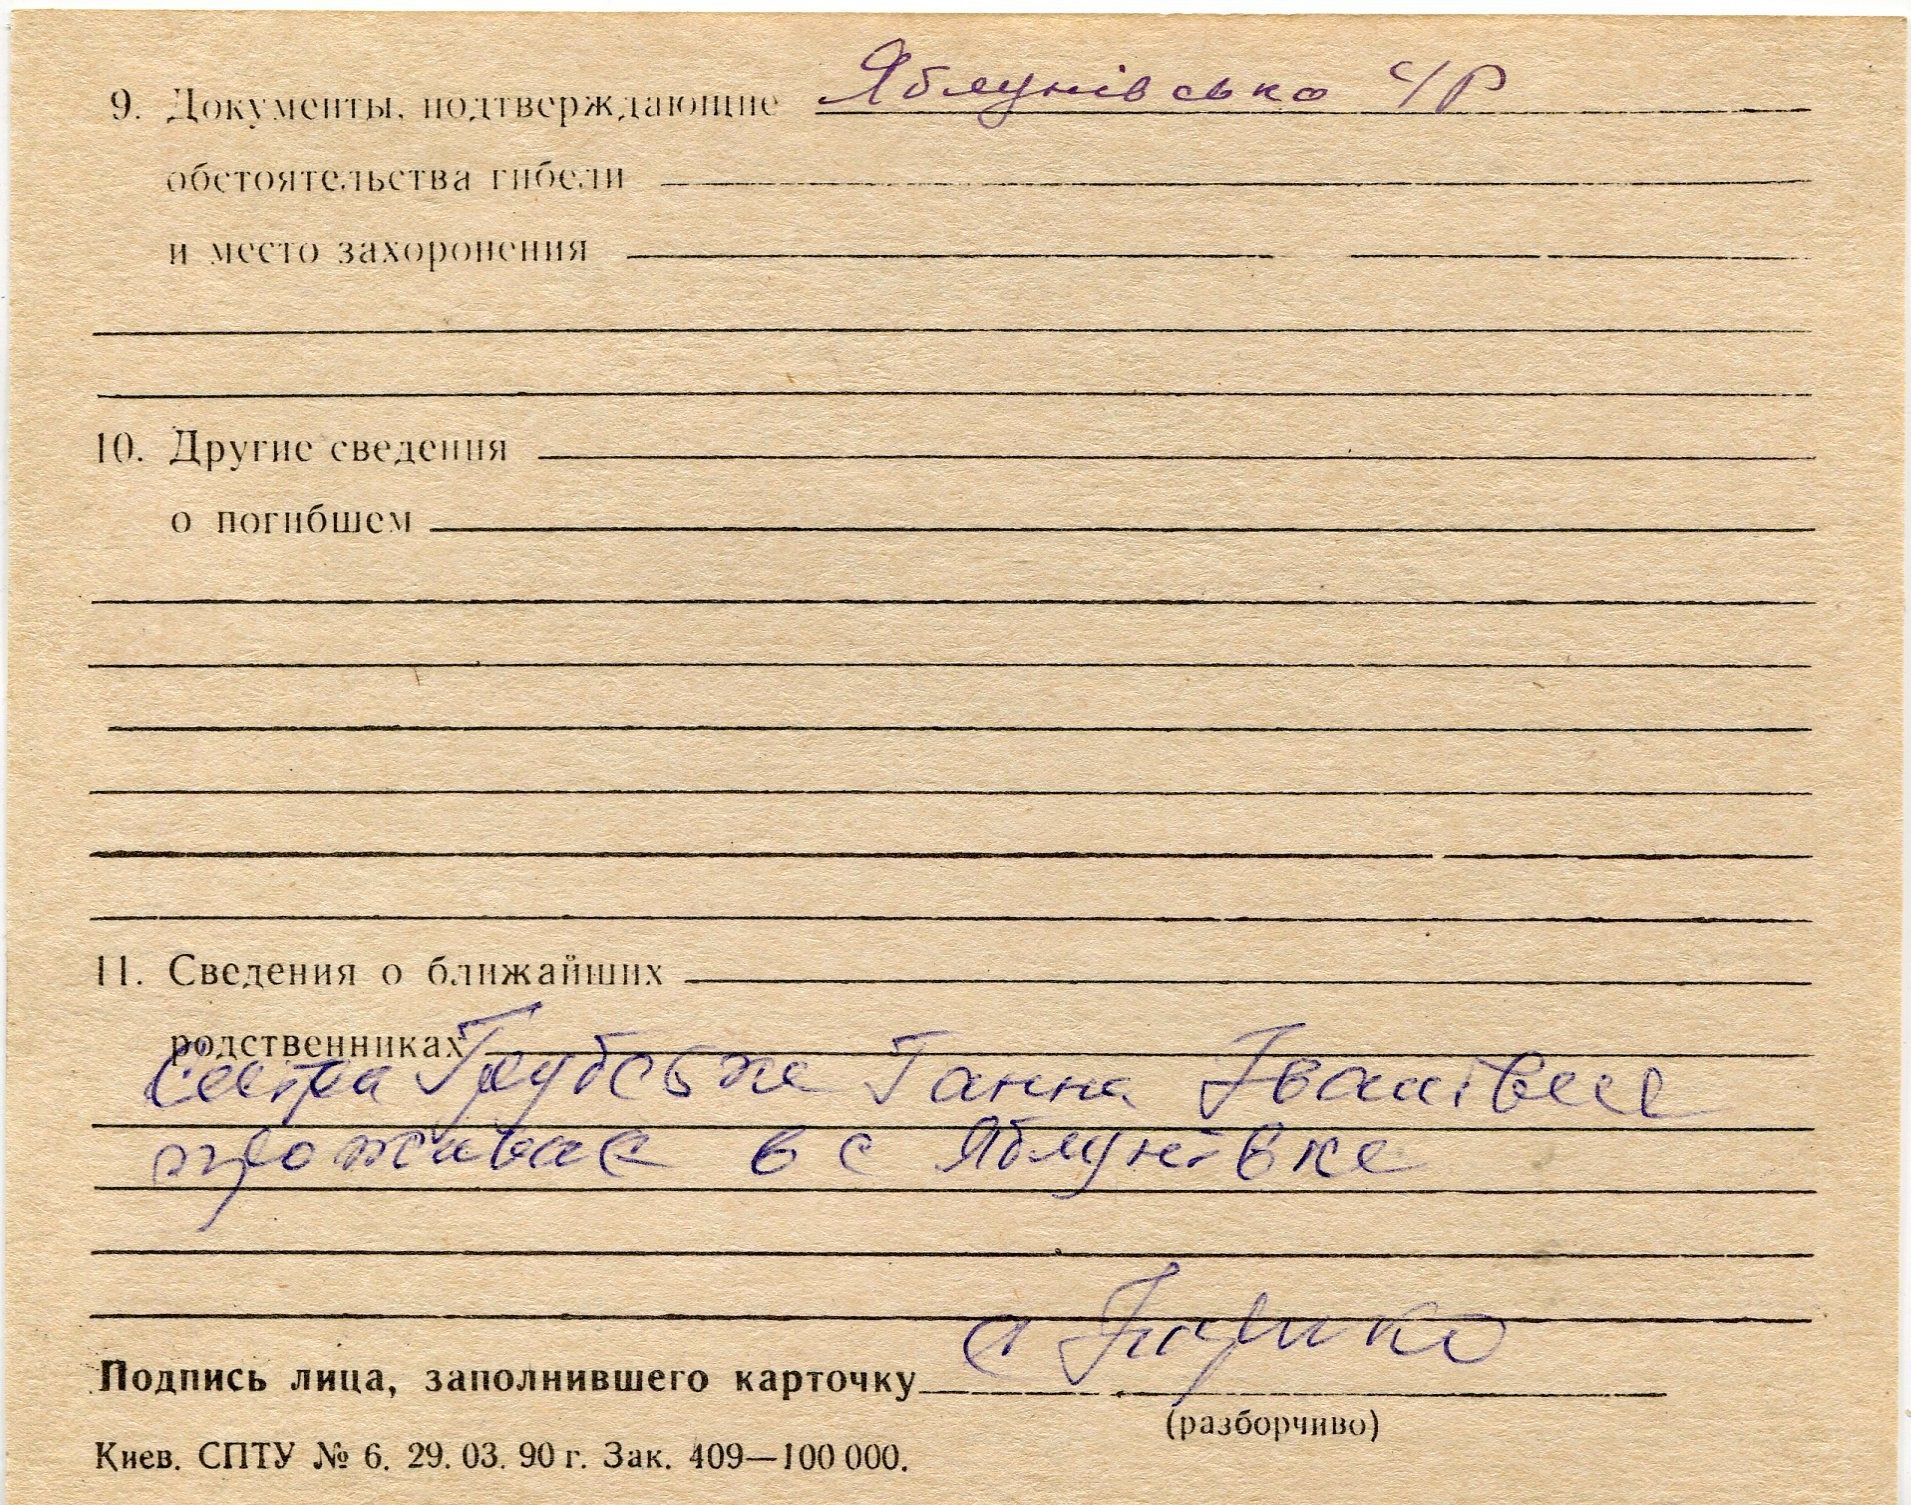 9. Документы, подтверждающие Яблунівсько Ч/Р
обстоятельства гибели
и место захоронения
10. Другие сведения
о погибшем
11. Сведения о ближайших
родственниках
Сестра Ганна Іванівна
проживає в с Яблунівка
Подпись лица, заполнившего карточку
(разборчиво)
Киев. СПТУ № 6. 29. 03. 90 г. Зак. 409—100 000.